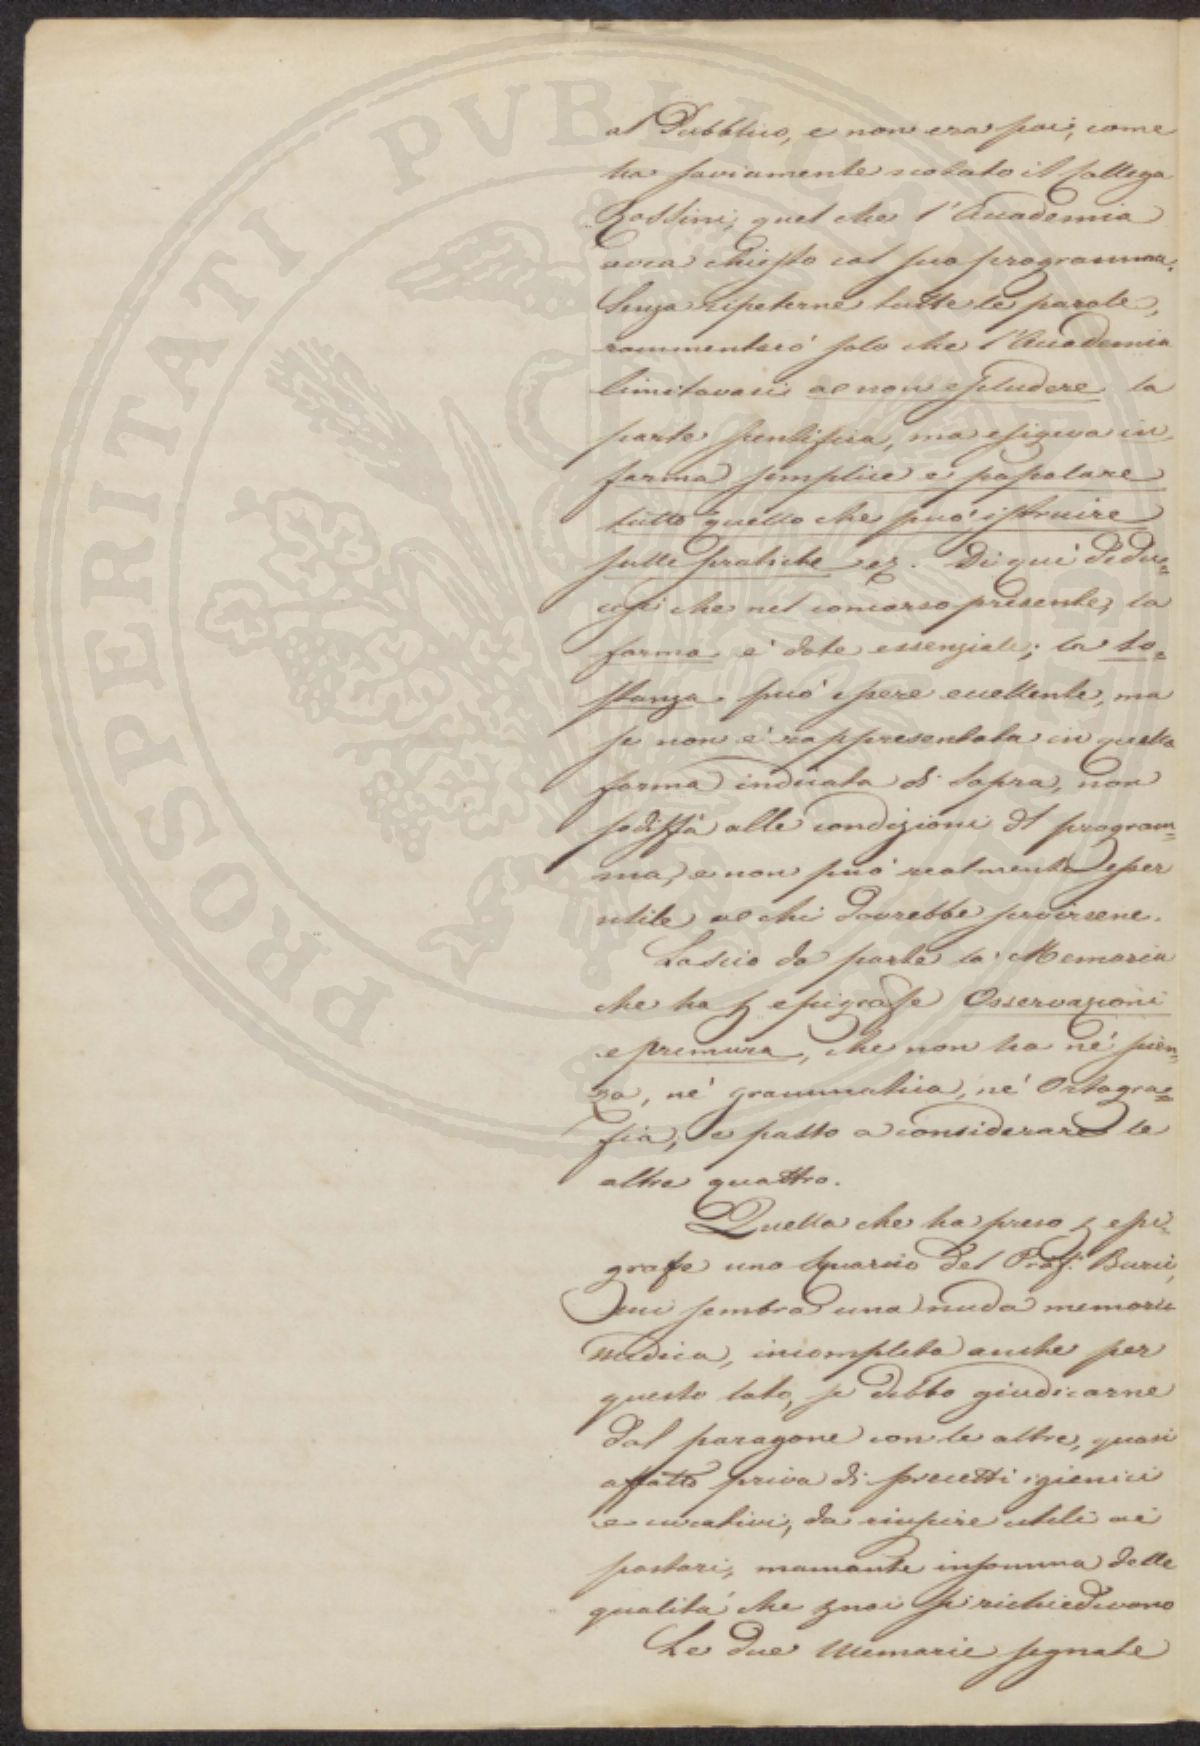 al Pubblico, e non era poi, come
ha saviamente notato il Collega
Rossini, quel che l'Accademia
avea chiesto col suo programma.
Senza ripeterne tutte le parole,
rammenterò solo che l'Accademia
limitavasi a non escludere la
parte scientifica, ma esigeva in
forma semplice e popolare
tutto quello che può istruire
sulle pratiche ec. Di qui dedu=
cesi che nel concorso presente, la
forma è dote essenziale; la so=
stanza può essere eccellente, ma
se non è rappresentata in quella
forma indicata di sopra, non
sodisfà alle condizioni del program=
ma, e non può realmente esser
utile a chi dovrebbe servirsene.
Lascio da parte la Memoria
che ha p epigrafe Osservazioni
e premura, che non ha nè scien=
za, nè grammatica, nè Ortogra=
fia, e passo a considerare le
altre quattro.
Quella che ha preso p epi=
grafe uno squarcio del Prof. Buzzi,
mi sembra una nuda memoria
medica, incompleta anche per
questo lato, se debbo giudicarne
dal paragone con le altre, quasi
affatto priva di precetti igienici
e curativi, da riuscire utili ai
pastori, mancante insomma delle
qualità che p noi si richiedevano
Le due Memorie segnate
PROSPERITATI PVBLICAE